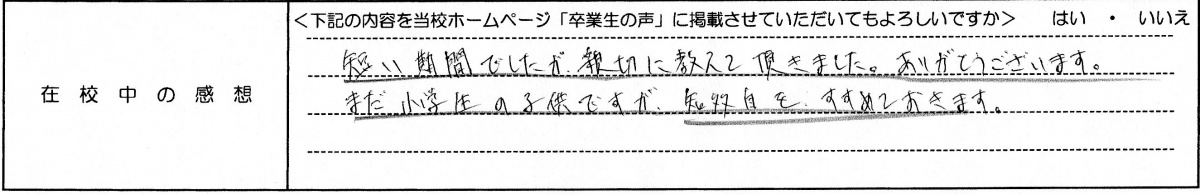 <下記の内容を当校ホームページ「卒業生の声」に掲載させていただいてもよろしいですか> はい ・ いいえ
在校中の感想
短い期間でしたが、親切に教えて頂きました。ありがとうございます。
まだ小学生の子供ですが、を、すすめておきます。